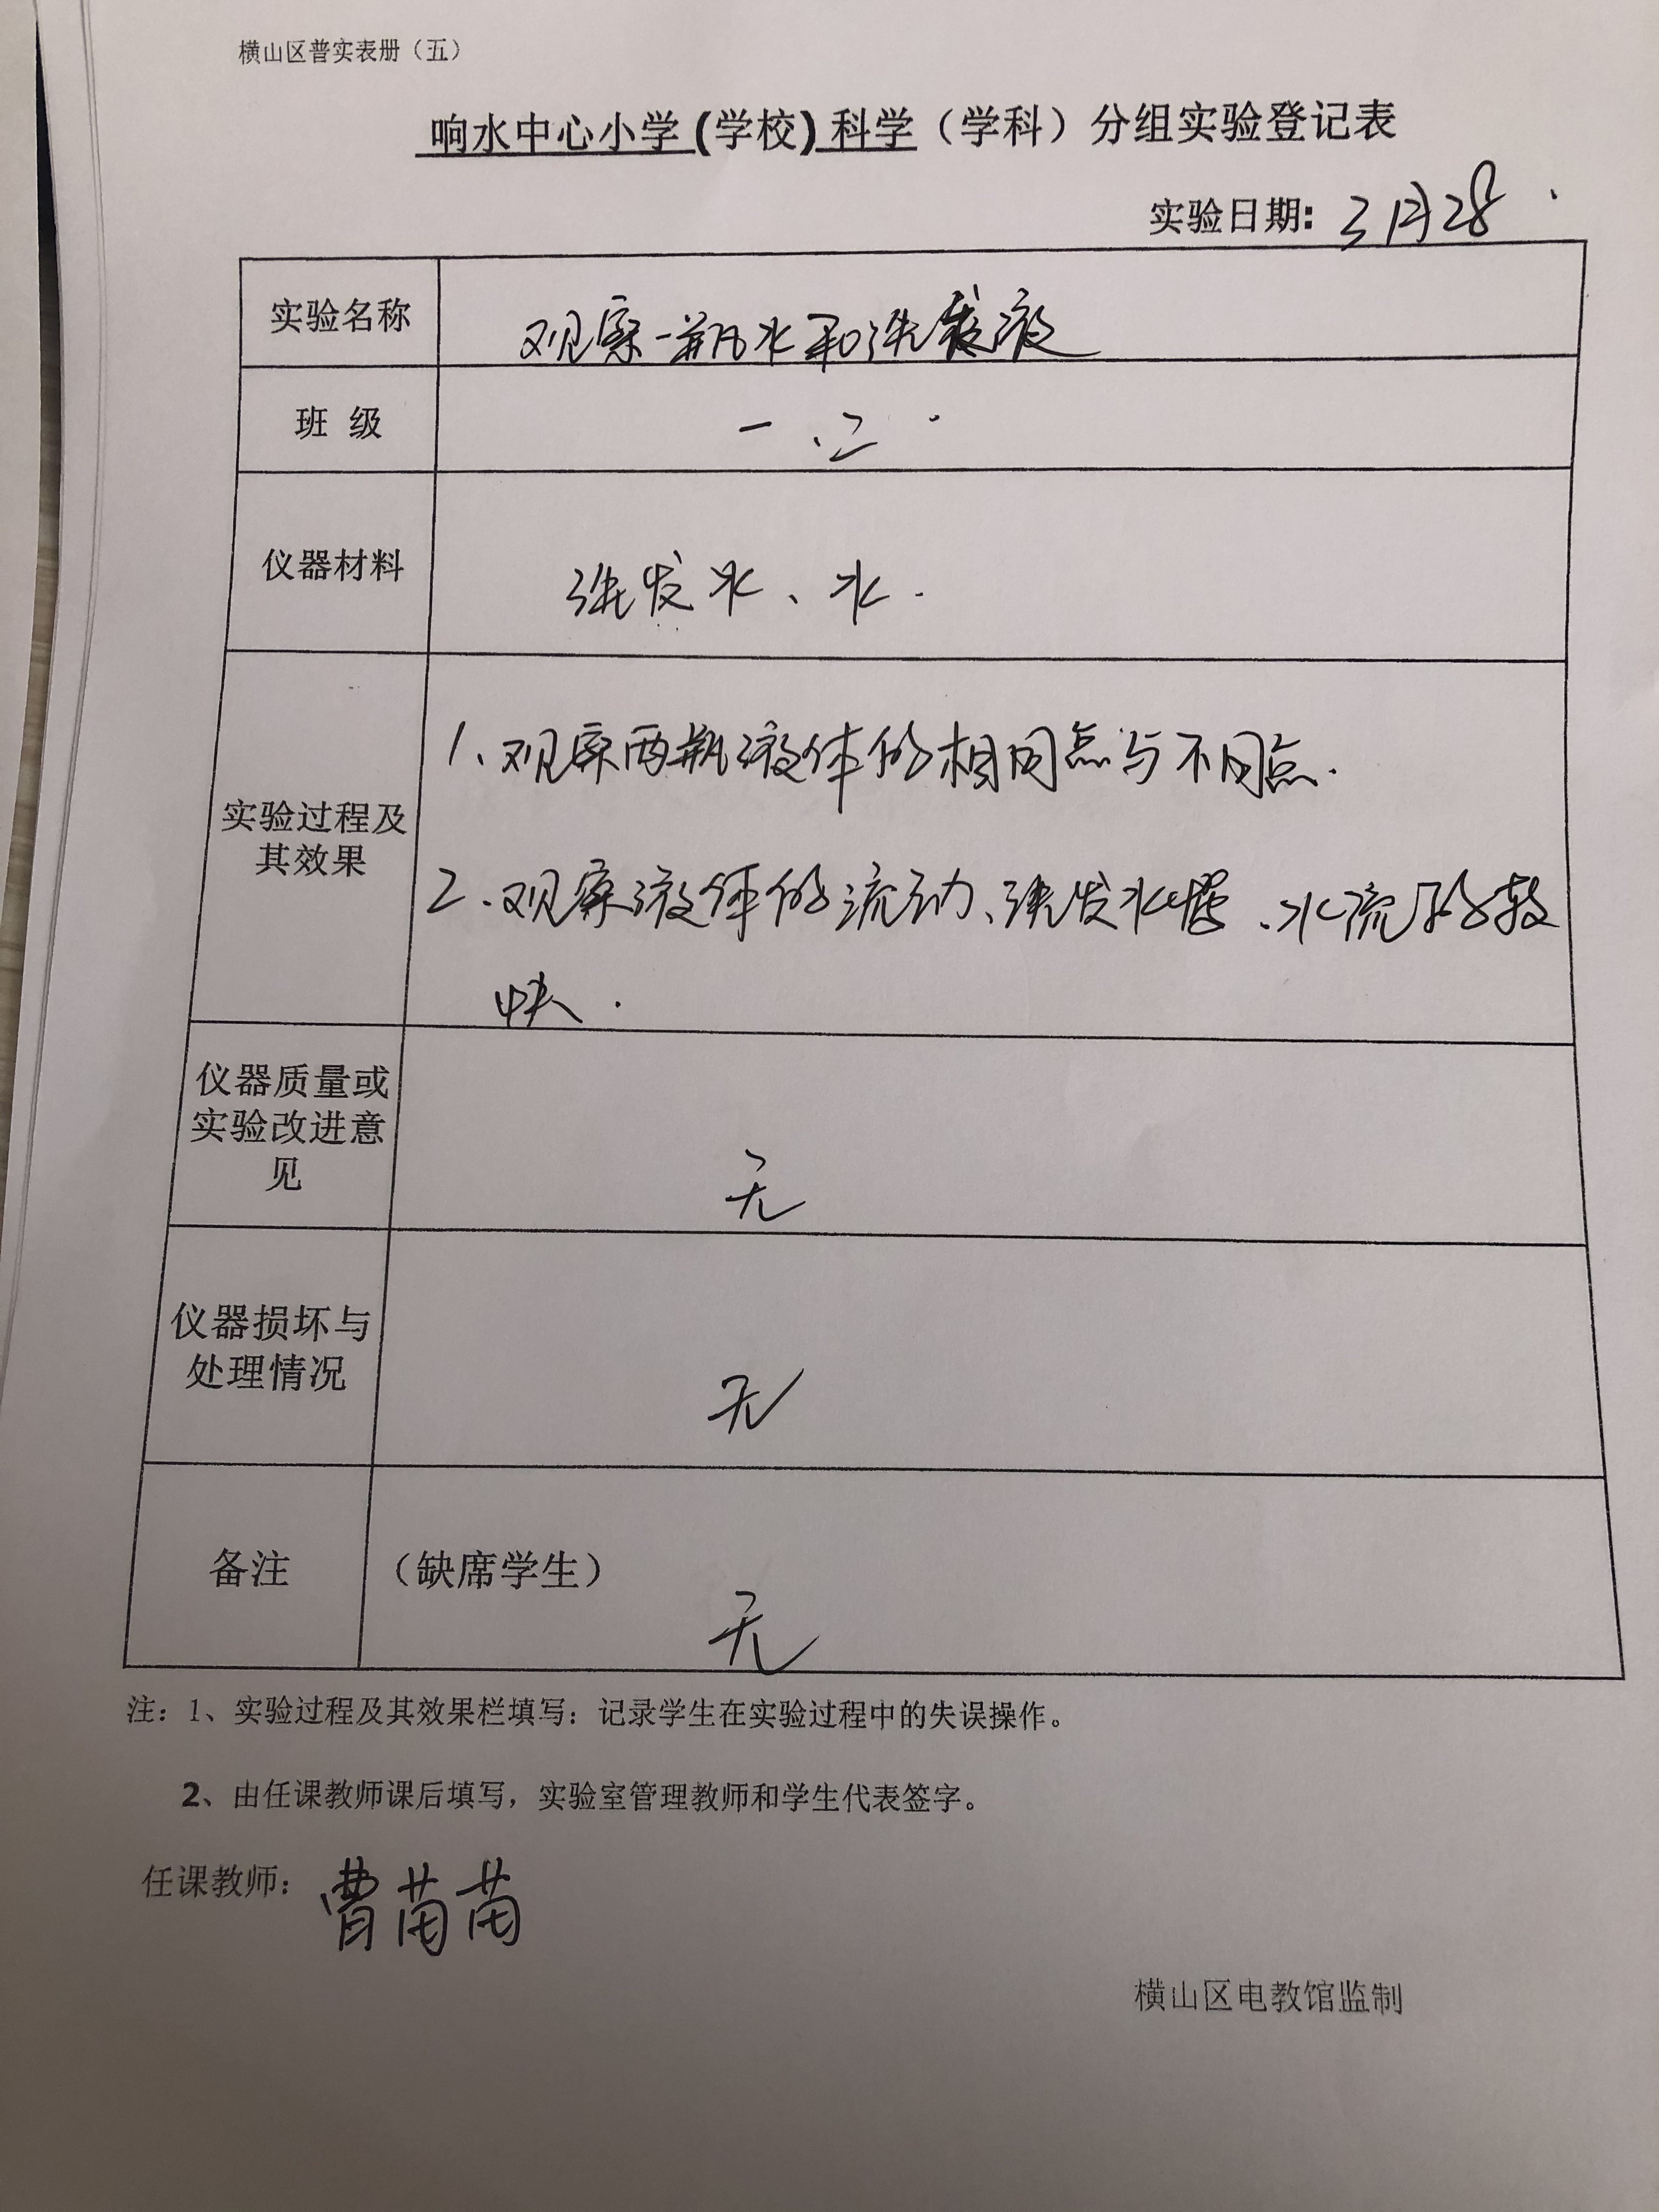 横山区普实表册（五）
响水中心小学(学校)科学（学科）分组实验登记表
实验日期: 3月28
实验名称 观察一瓶水和洗发液
班 级 一.二.
仪器材料 洗发水、水.
实验过程及
其效果
1、观察两瓶液体的相同点与不同点.
2.观察液体的流动、洗发水慢、水流的较
快.
仪器质量或
实验改进意
见
无
仪器损坏与
处理情况
无
备注 （缺席学生）
无
注：1、实验过程及其效果栏填写：记录学生在实验过程中的失误操作。
2、由任课教师课后填写，实验室管理教师和学生代表签字。
任课教师：曹苗苗
横山区电教馆监制